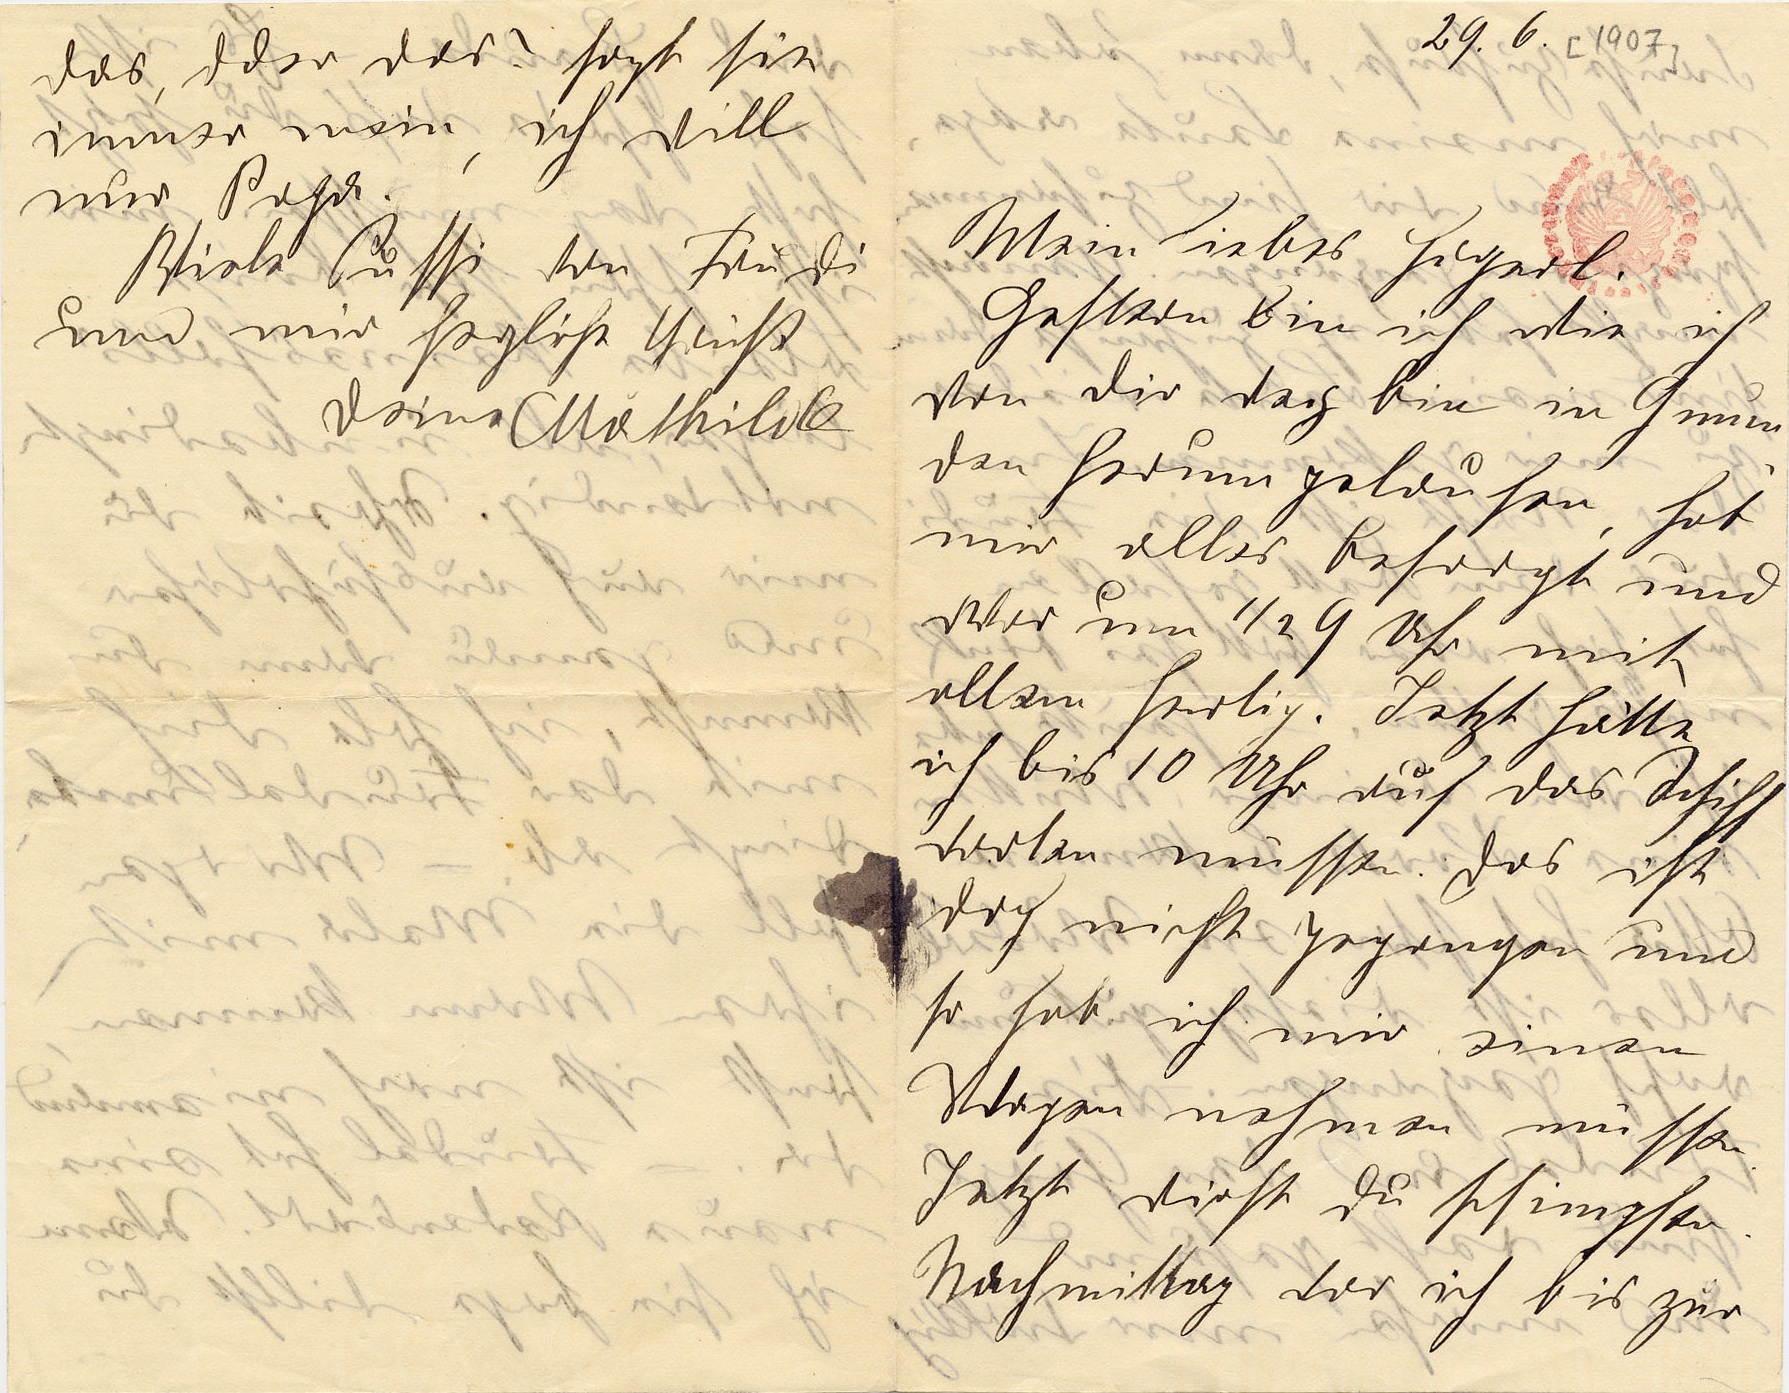 29. 6. [1907]
Mein liebes Hugerl.
Gestern bin ich wie ich
von dir weg bin in Gmun
den herumgelaufen, hab
mir alles besorgt und
war um 1/2 9 Uhr mit
allem fertig. Jetzt hätte
ich bis 10 Uhr auf das Schiff
warten müssen. Das ist
doch nicht gegangen und
so hab ich mir einen
Wagen nehmen müssen.
Jetzt wirst du schimpfen.
Nachmittag war ich bis zur
das, oder das? sagt sie
immer nein, ich will
nur Papa.
Viele Bussi von Trudi
und mir herzliche Grüße
deine Mathilde